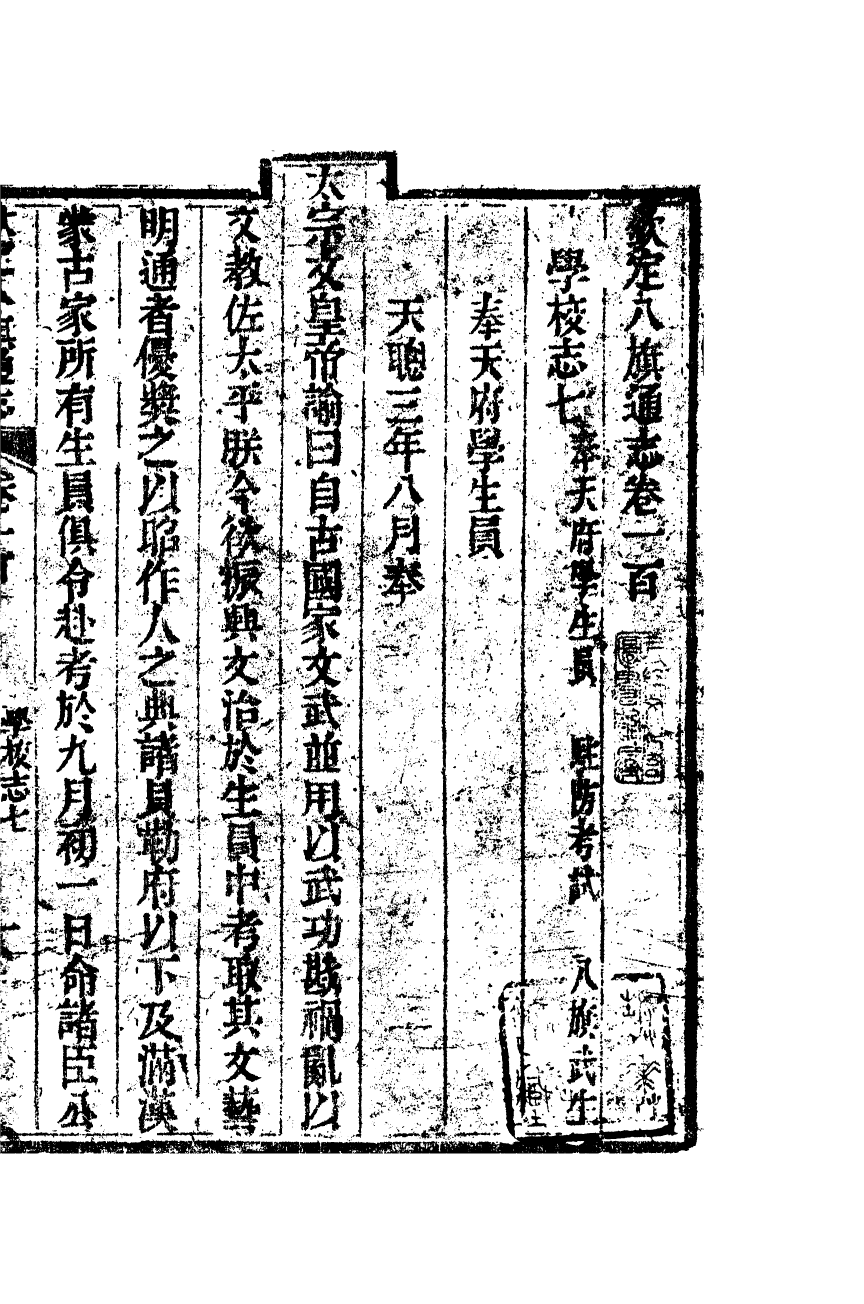 欽定八旗通志卷一百
學校志七 奉天府學生員 駐防考試 八旗武生
奉天府學生員
天聰三年八月奉
太宗文皇帝諭曰自古國家文武並用以武功戡禍亂以
文教佐太平朕今欲振興文治於生員中考取其文藝
明通者優獎之以昭作人之典諸貝勒府以下及滿漢
蒙古家所有生員俱令赴考於九月初一日命諸臣公
學校志七